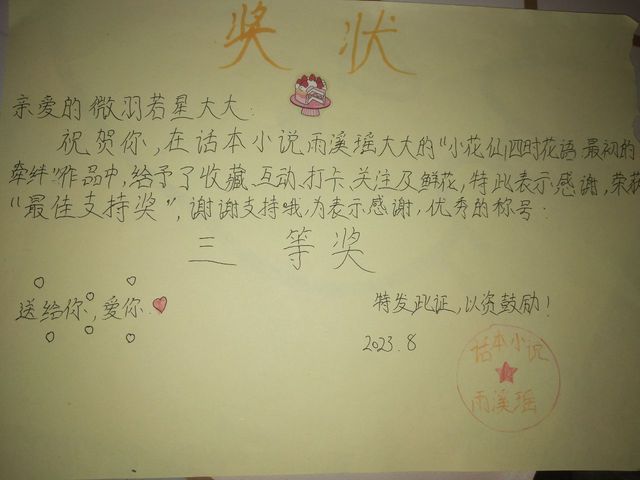 奖 状
亲爱的微羽若星大大:
祝贺你,在话本小说雨溪瑶大大的“小花仙四时花语最初的
牵绊”作品中,给予了收藏、互动、打卡、关注及鲜花,特此表示感谢,荣获
“最佳支持奖”,谢谢支持哦,为表示感谢,优秀的称号.
三 等 奖
送给你,爱你.
特发此证,以资鼓励!
2023.8
话本小说
雨溪瑶